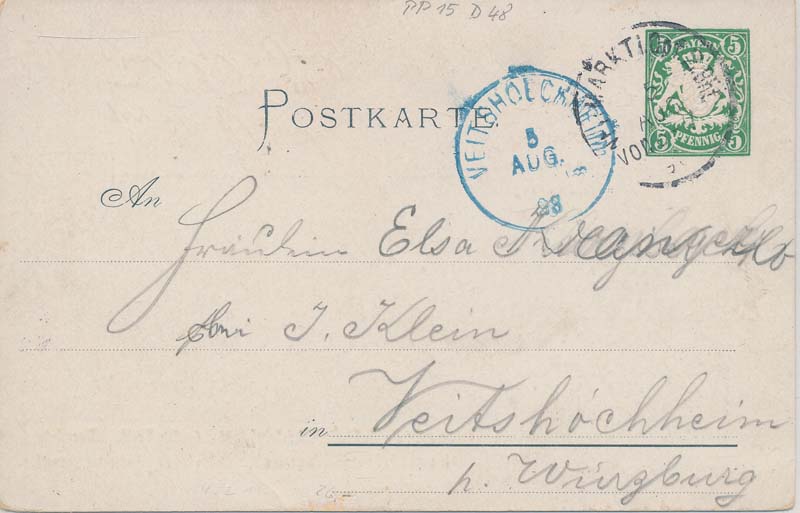 PP 15 D 48
BAYERN
5 5
PFENNIG
5 5
POSTKARTE
VEITSHOECHHEIM
5
AUG.
98
VOR
An
Fräulein Elsa
bei J. Klein
in Veitshöchheim
p. Würzburg